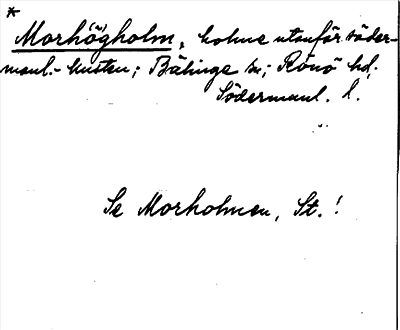 *
Morhögholm, holme utanför söder-
manl.- kusten; Bälinge sn; Rönö hd,
Södermanl. l.
Se Morholmen, St.!